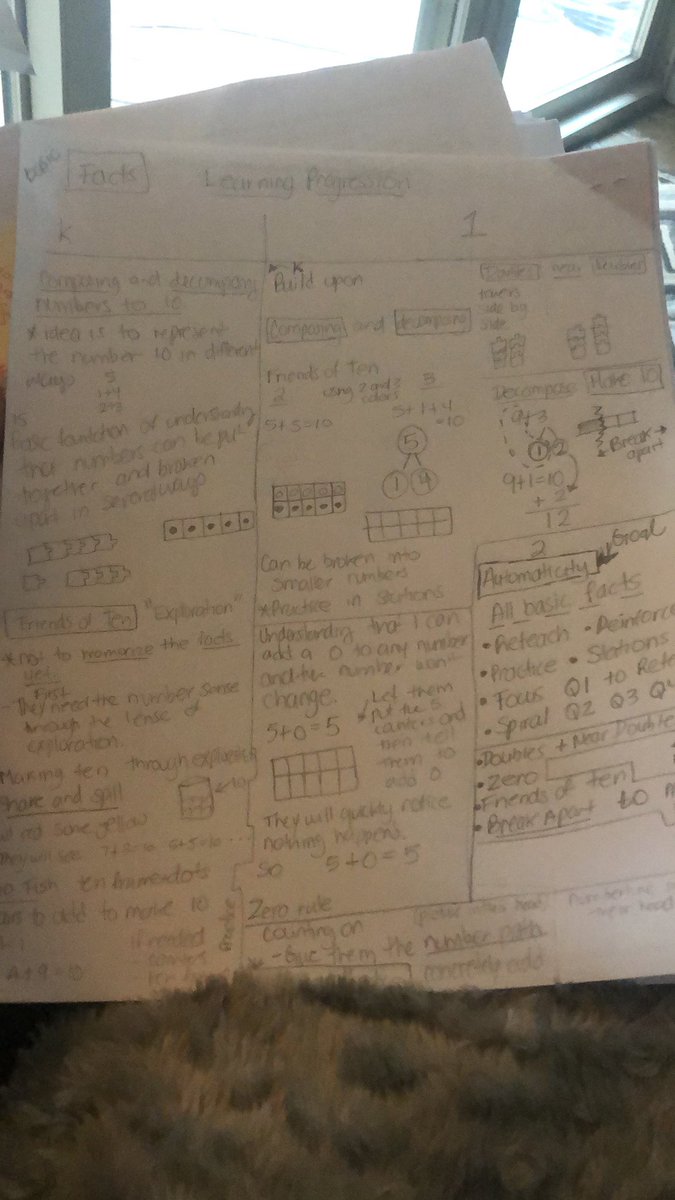 basic
Facts
Learning Progression
K
Composing and decomposing
numbers to 10
* idea is to represent
the number 10 in different
ways
5
1+4
2+3
is
basic function of understanding
that numbers can be put
together and broken
apart in several ways
Friends of Ten "Exploration"
* not to memorize the facts
yet.
First
- They need the number sense
through the lense of
exploration.
Making ten through exploration
Shake and spill
10
red some yellow
They will see
Fish ten frame dots
to add to make 10
if needed
Practice
K
Build upon
Composing and decomposing
Friends of Ten
2 using 2 and 3 3
colors
5+5=10
5+1+4
=10
5
1 4
Can be broken into
smaller numbers
* Practice in Stations
Understanding that I can
add a 0 to any number
and the number won't
change.
5+0=5
Let them
put the 5
counters and
then tell
them to
add 0
They will quickly notice
nothing happens.
So 5+0=5
Zero rule
Counting on
- Give them the number path
concretely add
1
Doubles near doubles
towers
side by
side
Decompose Make 10
9+3
1 2
9+1=10
+ 2
12
Break
apart
2
Goal
Automaticity
All basic facts
• Reteach • Reinforce
• Practice • Stations
• Focus Q1 to
• Spiral Q2 Q3
• Doubles + Near Doubles
• Zero
• Friends of Ten
• Break Apart to